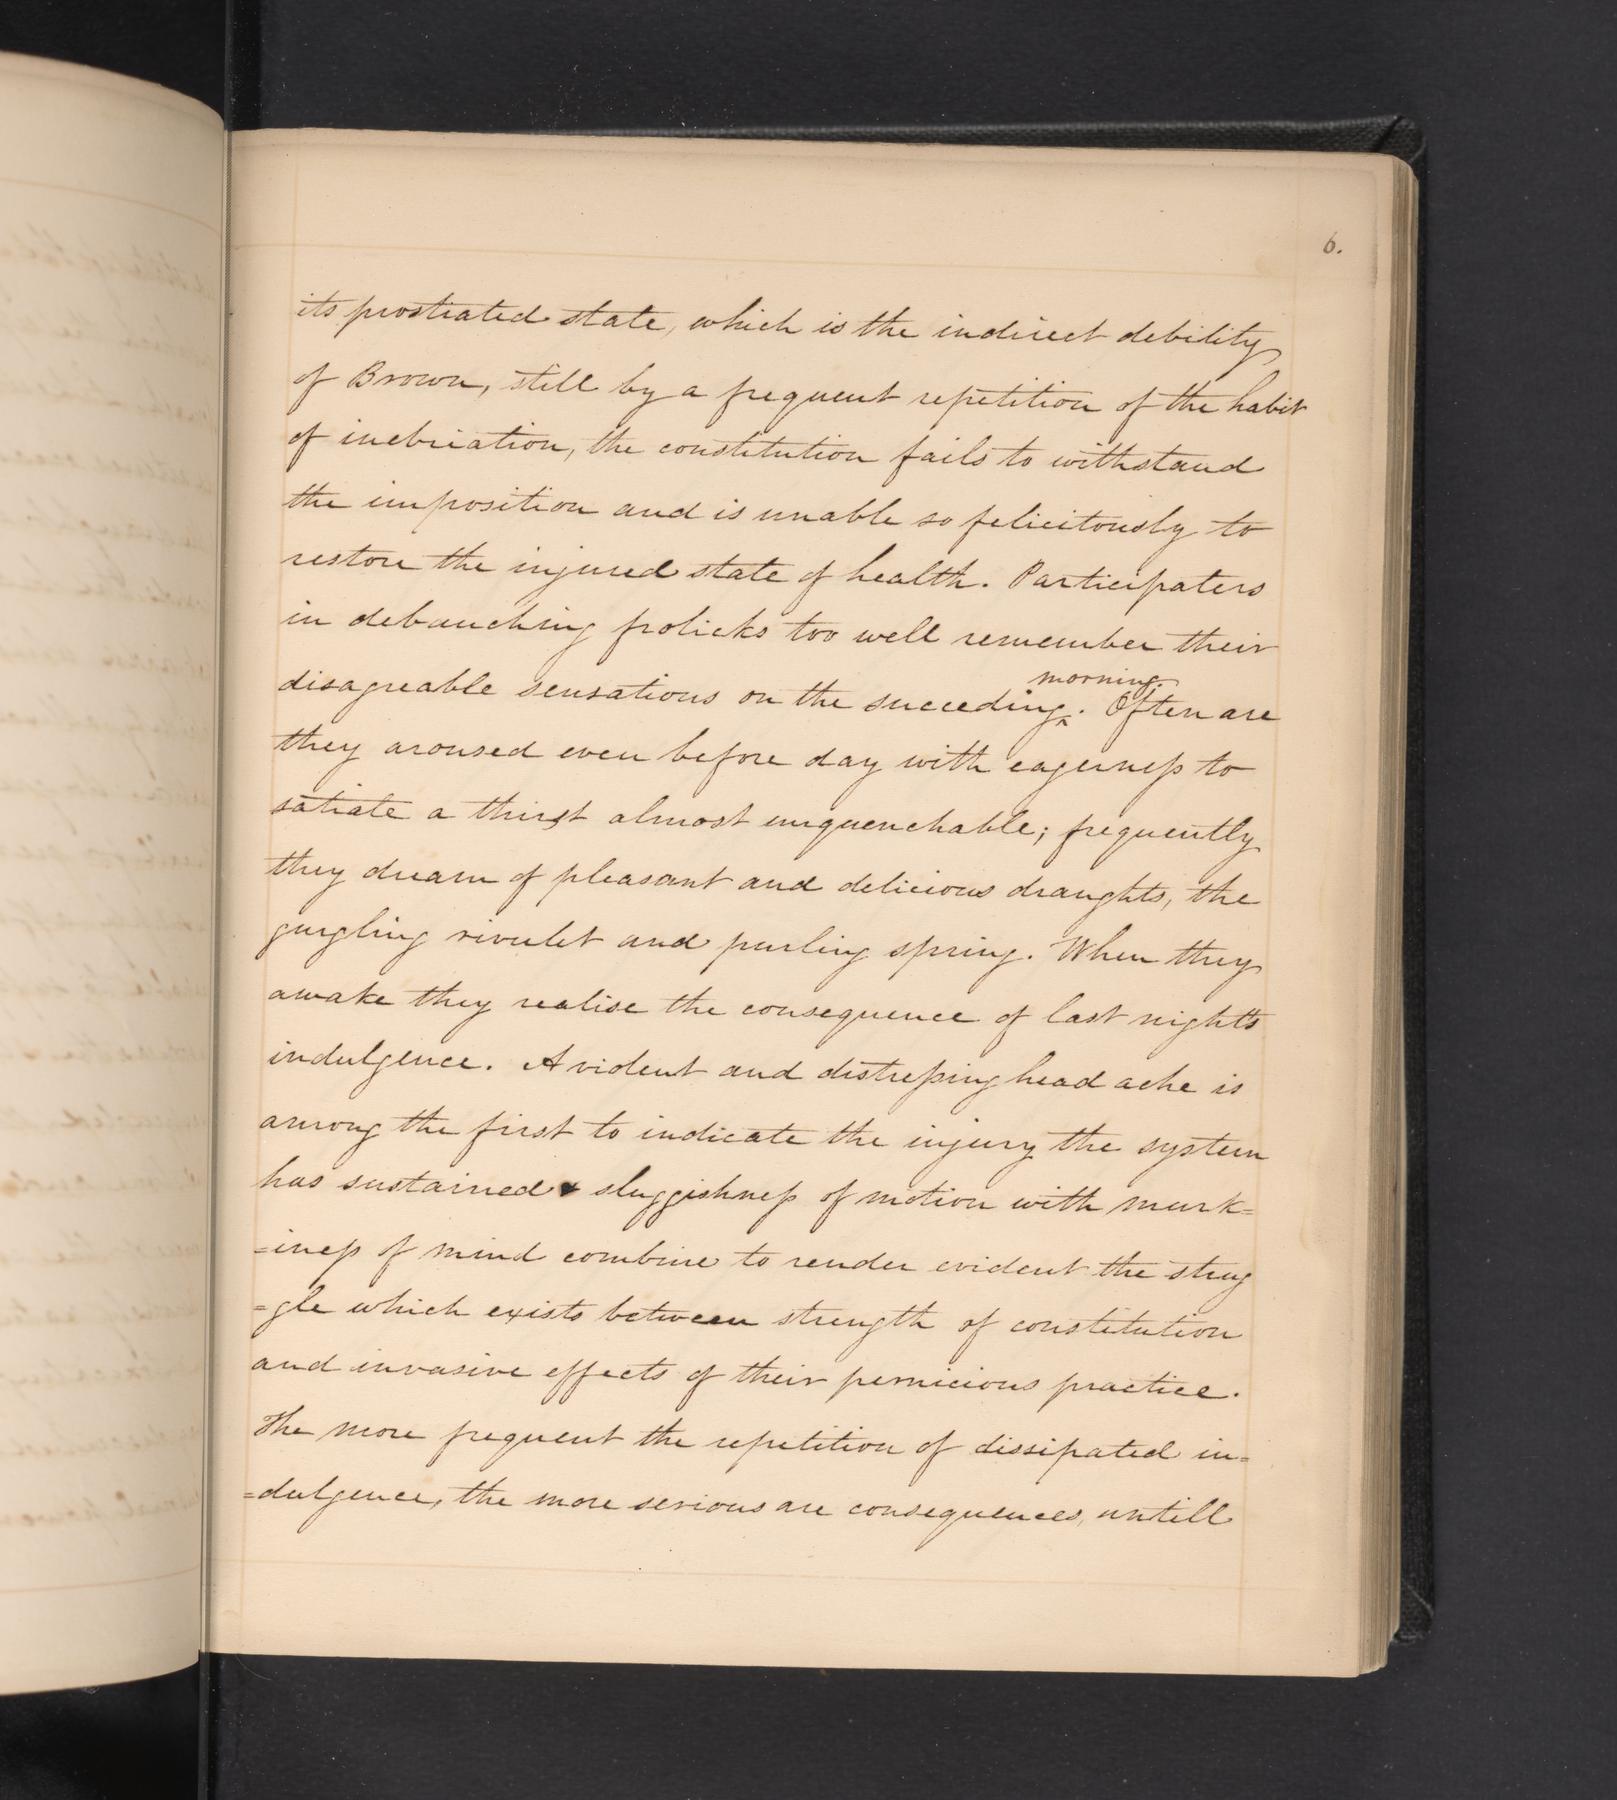 6.
its prostrated state, which is the indirect debility
of Brown, still by a frequent repetition of the habit
of inebriation, the constitution fails to withstand
the imposition and is unable so felicitously to
restore the injured state of health. Participaters
in debauching frolicks too well remember their
disagreable sensations on the succeding morning. Often are
they aroused even before day with eagerness to
satiate a thirst almost unquenchable; frequently
they dream of pleasant and delicious draughts, the
gurgling rivulet and purling spring. When they
awake they realise the consequence of last nights
indulgence. A violent and distressing head ache is
among the first to indicate the injury the system
has sustained & sluggishness of motion with murk=
=iness of mind combine to render evident the strug
=gle which exists between strength of constitution
and invasive effects of their pernicious practice.
The more frequent the repetition of dissipated in=
=dulgence, the more serious are consequences, untill